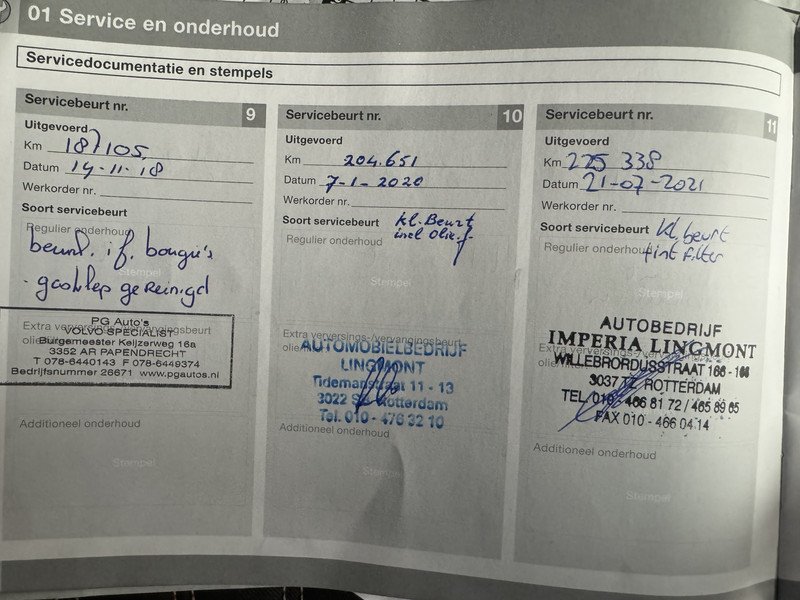 01 Service en onderhoud
Servicedocumentatie en stempels
Servicebeurt nr. 9
Uitgevoerd
Km 187105,
Datum 14-11-18
Werkorder nr.
Soort servicebeurt
Regulier onderhoud
beurt. if. bougie's
Stempel
gasklep gereinigd
Extra verversings-/vervangingsbeurt
PG Auto's
VOLVO SPECIALIST
Burgemeester Keijzerweg 16a
3352 AR PAPENDRECHT
T 078-6440143 F 078-6449374
Bedrijfsnummer 26671 www.pgautos.nl
Additioneel onderhoud
Stempel
Servicebeurt nr. 10
Uitgevoerd
Km 204.651
Datum 7-1-2020
Werkorder nr.
Soort servicebeurt kl. Beurt
incl Olie.f.
Regulier onderhoud
Stempel
Extra verversings-/vervangingsbeurt
AUTOMOBIELBEDRIJF
LINGMONT
Tidemanstraat 11 - 13
3022 Rotterdam
Tel. 010 - 476 32 10
Additioneel onderhoud
Stempel
Servicebeurt nr. 11
Uitgevoerd
Km 225 338
Datum 21-07-2021
Werkorder nr.
Soort servicebeurt kl. beurt
Regulier onderhoud +int filter
Stempel
AUTOBEDRIJF
IMPERIA LINGMONT
WILLEBRORDUSSTRAAT 166 - 168
3037 ROTTERDAM
TEL. 010 - 466 81 72 / 465 89 65
FAX 010 - 466 04 14
Additioneel onderhoud
Stempel